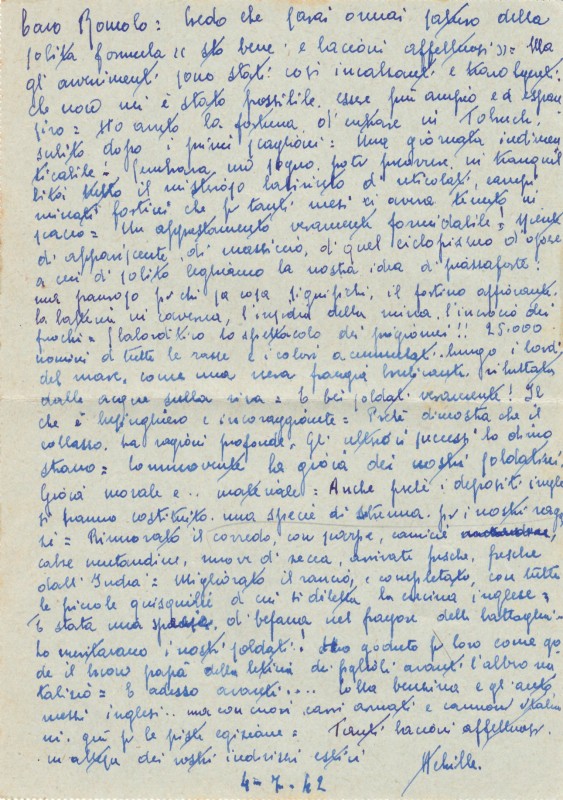 Caro Romolo: credo che sarai ormai saturo della
solita formula « sto bene: e bacioni affettuosi » = Ma
gli avvenimenti sono stati così incalzanti e travolgenti
che non mi è stato possibile essere più ampio ed espan
sivo = Ho avuto la fortuna d'entrare in Tobruch
subito dopo i primi scaglioni: Una giornata indimen
ticabile! Sembrava un sogno poter percorrere in tranquil
lità il misterioso labirinto di reticolati, campi
minati fortini che per tanti mesi ci aveva tenuto in
scacco = Un apprestamento veramente formidabile! Niente
di appariscente, di massiccio, di quel ciclopismo d'opere
a cui di solito leghiamo la nostra idea di piazzaforte:
ma pauroso per chi sa cosa significhi, il fortino affiorante
la batteria in caverna, l'insidia della mina. l'incrocio dei
fuochi = Sbalorditivo lo spettacolo dei prigionieri!! 25.000
uomini di tutte le razze e i colori accumulati.. lungo i bordi
del mare, come una nera frangia brulicante ributtata
dalle acque sulla riva = E bei soldati veramente! Il
che è lusinghiero e incoraggiante = Perché dimostra che il
collasso ha ragioni profonde. Gli ulteriori successi lo dimo
strano = Commovente la gioia dei nostri soldatini.
Gioia morale e.. materiale: Anche perché i depositi ingle
si hanno costituito una specie di strenna per i nostri ragaz
zi = Rinnovato il corredo, con scarpe, camicie,
calze mutandine, nuove di zecca, arrivate fresche fresche
dall'India = Migliorato il rancio, e completato, con tutte
le piccole quisquilie di cui si diletta la cucina inglese =
E stata una di befana nel fragore delle battaglie.
Lo meritavano i nostri soldati! Ho goduto per loro come go
de il buon papà della letizia dei figlioli avanti l'albro na
talizio = E adesso avanti.... Colla benzina e gli auto
mezzi inglesi.. ma con cuori, carri armati e cannoni italia
ni. giù per le piste egiziane = Tanti bacioni affettuosi
in attesa dei vostri indirizzi estivi
Achille.
4-7-42